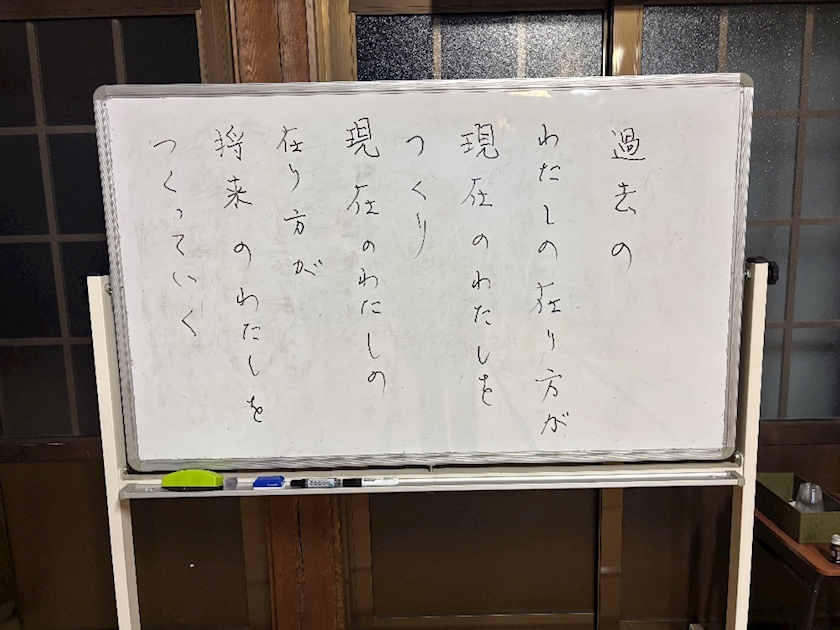 過去の
わたしの在り方が
現在のわたしを
つくり
現在のわたしの
在り方が
将来のわたしを
つくっていく